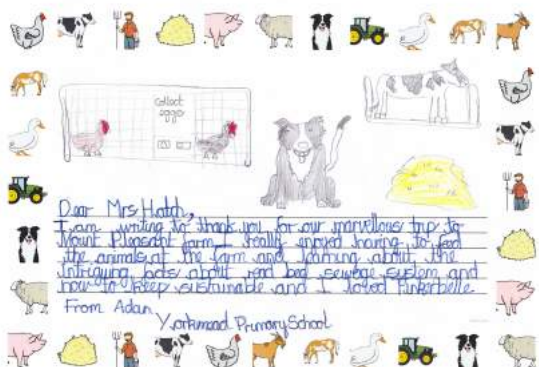 collect
eggs
Dear Mrs Hatch,
I am writing to thank you for our marvellous trip to
Mount Pleasant farm I really enjoyed having to feed
the animals at the farm and learning about the
intriguing facts about reed bed sewege system and
how to keep sustainable and I loved Tinkerbelle
From Adan
Yorkmead Primary School